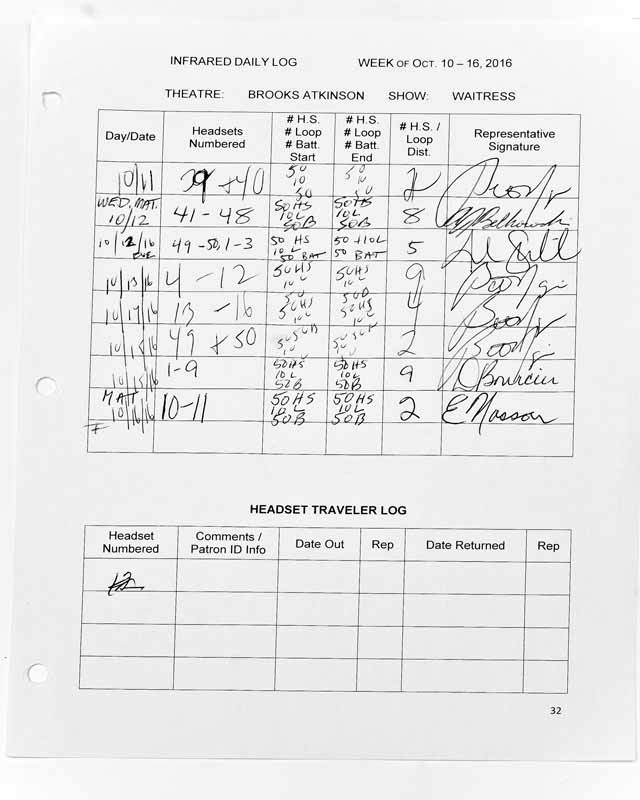 INFRARED DAILY LOG WEEK OF OCT. 10 – 16, 2016
THEATRE: BROOKS ATKINSON SHOW: WAITRESS
Day/Date
Headsets
Numbered
# H.S.
# Loop
# Batt.
Start
# H.S.
# Loop
# Batt.
End
# H.S. /
Loop
Dist.
Representative
Signature
10/11 39 + 40 50 10 50 50 10 50 2
WED. MAT.
10/12 41 - 48 50HS 10L 50B 50HS 10L 50B 8
10/12/16 EVE 49 - 50, 1 - 3 50 HS 10 L 50 BAT 50 + 10L 50 BAT 5
10/13/16 4 - 12 50HS 10L 50HS 10L 9
13 - 16 50HS 10L 50HS 10L 4
10/15/16 49 + 50 2
10/15/16 1-9 50HS 10L 50B 50HS 10L 50B 9
MAT
10/16/16 10-11 50HS 10L 50B 50HS 10L 50B 2 E Masson
HEADSET TRAVELER LOG
Headset
Numbered
Comments /
Patron ID Info
Date Out
Rep
Date Returned
Rep
12
32